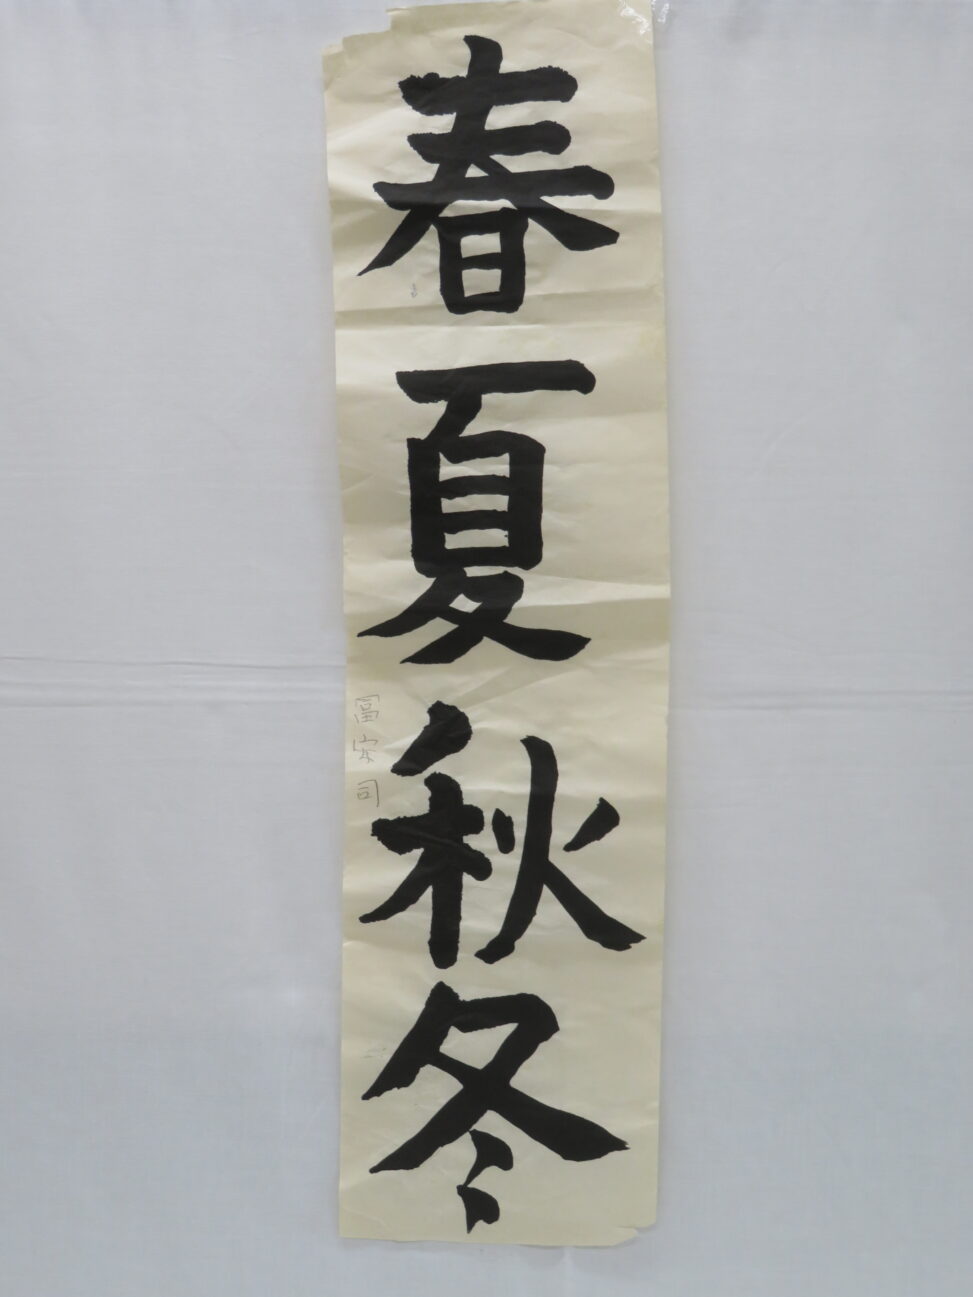 春夏秋冬
冨家司